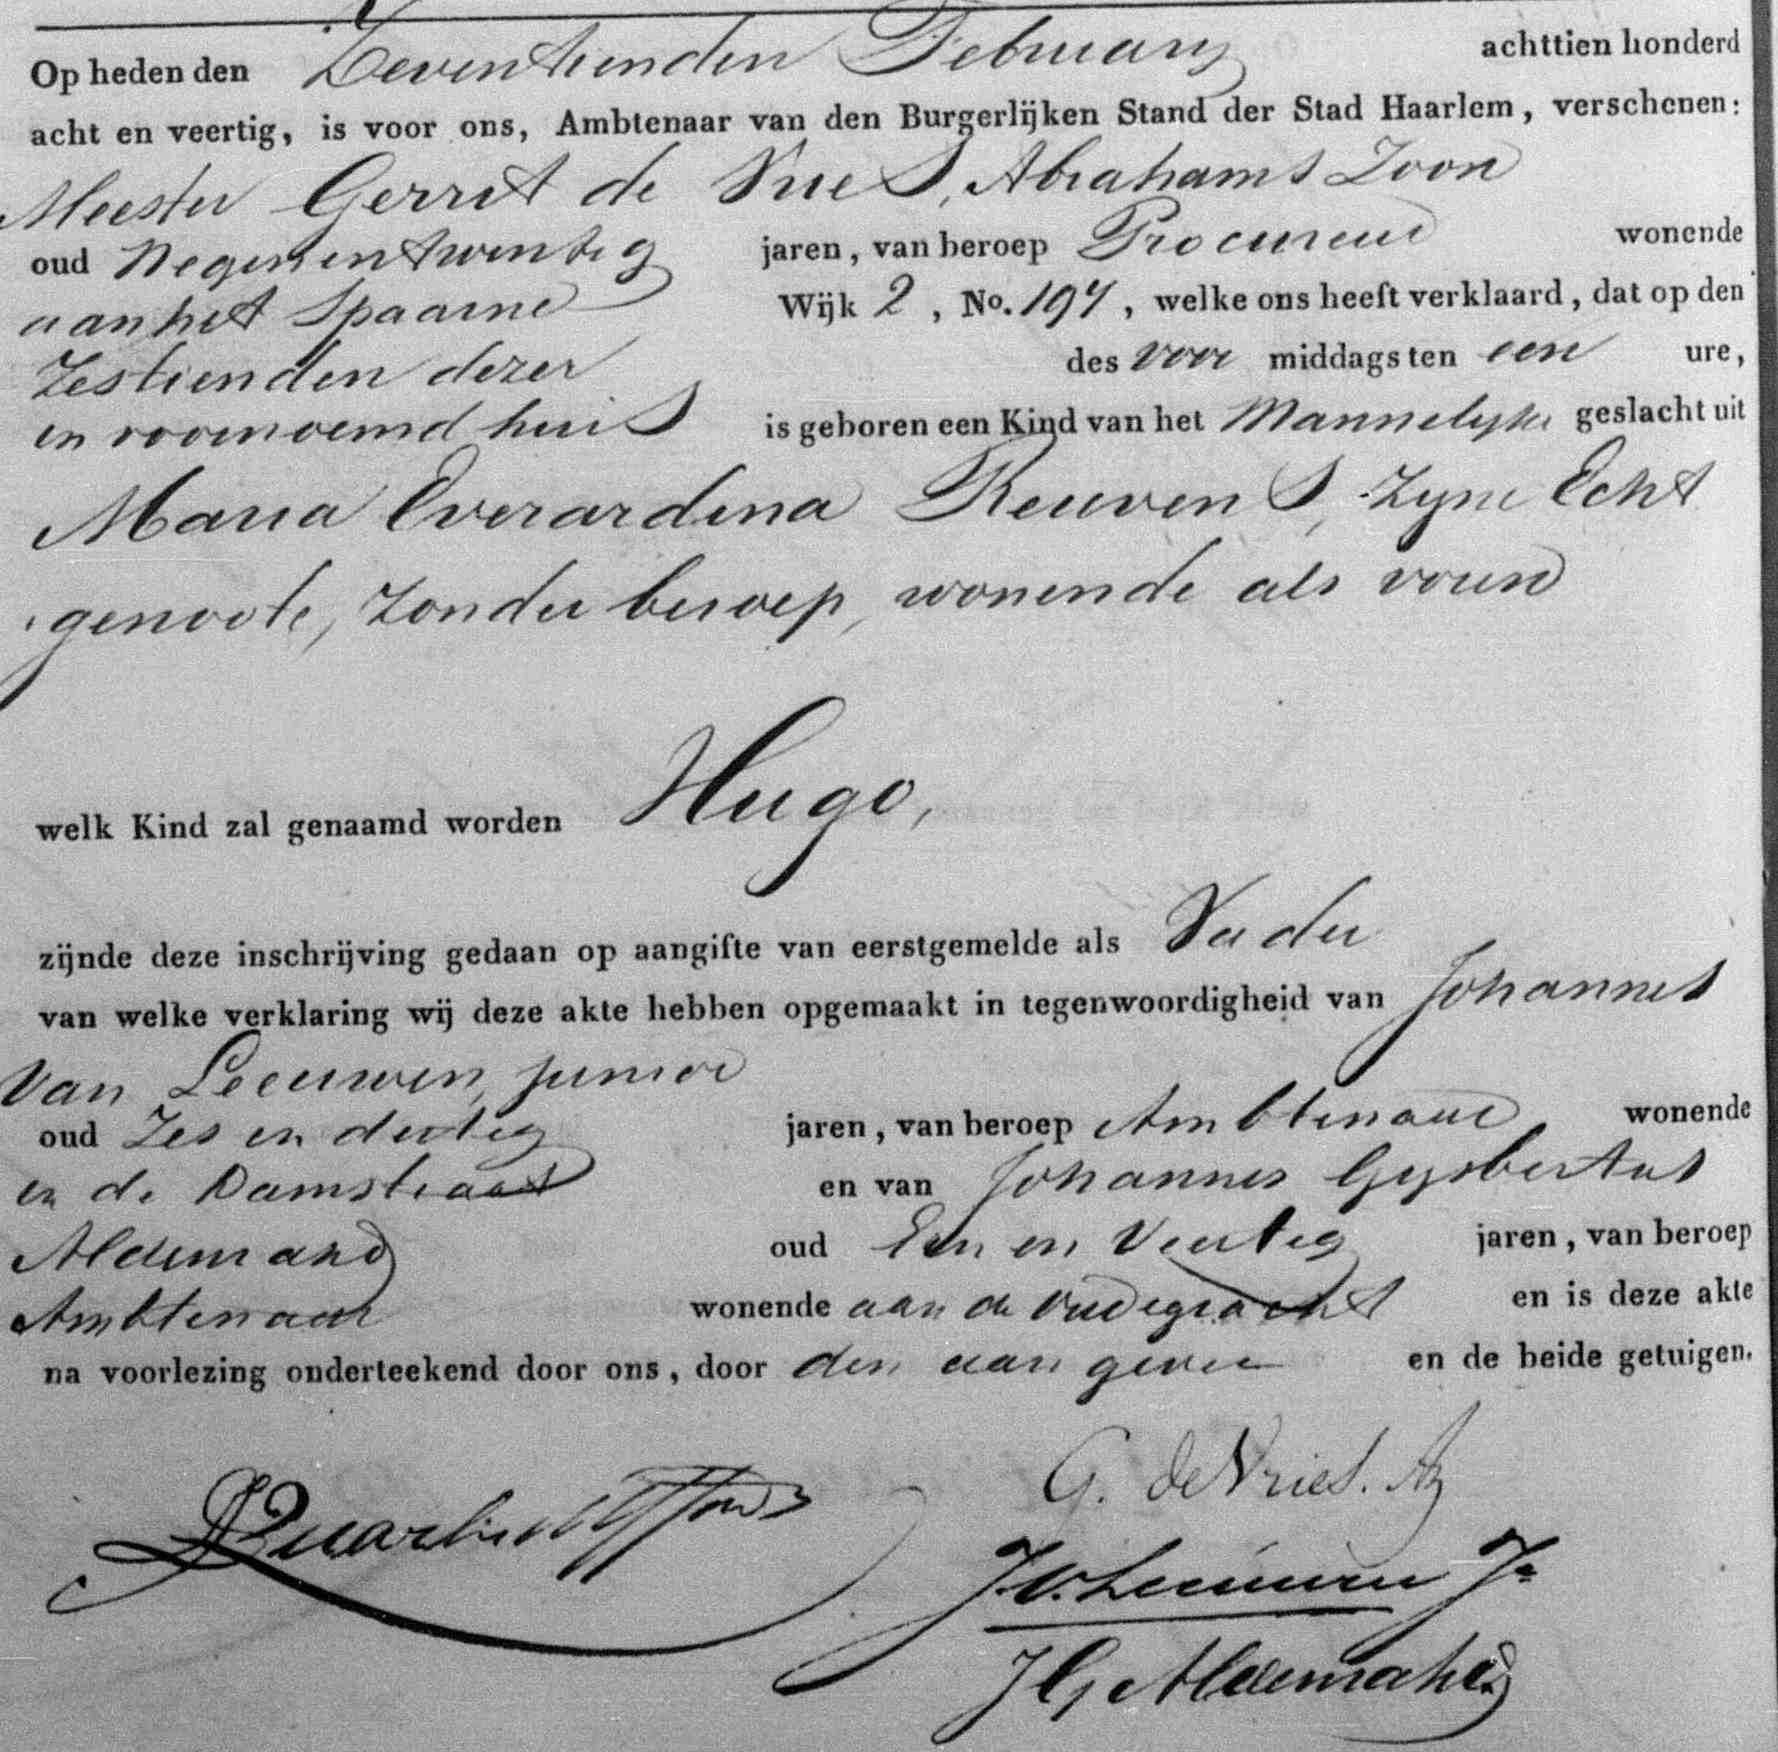 Op heden den Zeventienden February achttien honderd
acht en veertig, is voor ons, Ambtenaar van den Burgerlijken Stand der Stad Haarlem, verschenen:
Meester Gerrit de Vries, Abrahams Zoon
oud Negen en twintig jaren, van beroep Procureur wonende
aan het Spaarne Wijk 2, No. 197, welke ons heeft verklaard, dat op den
Zestienden dezer des voor middags ten een ure,
in voornoemd huis is geboren een Kind van het Mannelyke geslacht uit
Maria Everardina Reuvens, Zyne Echt
genoote, Zonder beroep, wonende als voren
Hugo,
welk Kind zal genaamd worden
zijnde deze inschrijving gedaan op aangifte van eerstgemelde als Vader
van welke verklaring wij deze akte hebben opgemaakt in tegenwoordigheid van Johannes
Van Leeuwen, junior
oud Zes en dertig jaren, van beroep Ambtenaar wonende
in de Damstraat en van Johannes Gysbertus
oud Een en Veertig jaren, van beroep
Ambtenaar wonende aan de Oudegracht en is deze akte
na voorlezing onderteekend door ons, door den aangever en de beide getuigen.
G. de Vries. Az
J.V. Leeuwen Jr